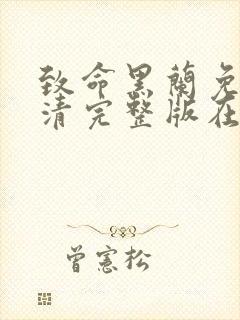 致命黑蘭免
清完整版在
曾憲松